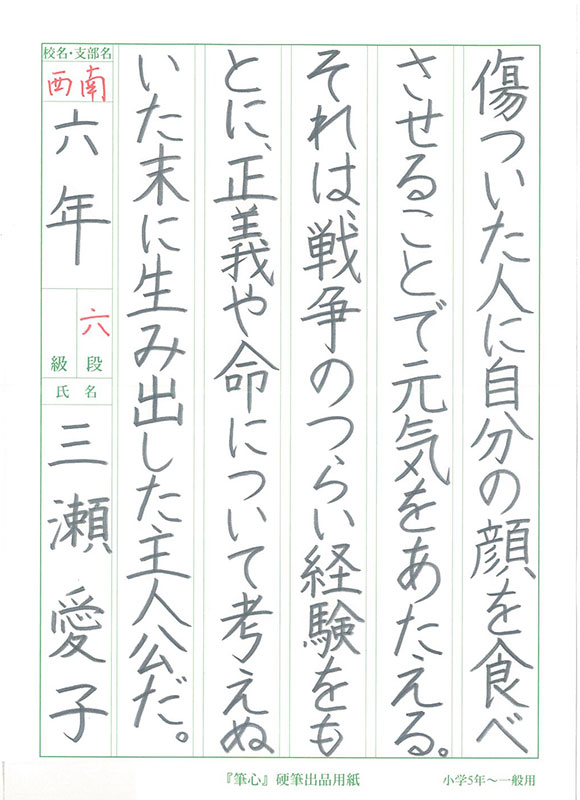 傷ついた人に自分の顔を食べ
させることで元気をあたえる。
それは戦争のつらい経験をも
とに、正義や命について考えぬ
いた末に生み出した主人公だ。
校名・支部名
西南
六年
六
段
級
氏名
三瀬愛子
『筆心』硬筆出品用紙
小学5年〜一般用